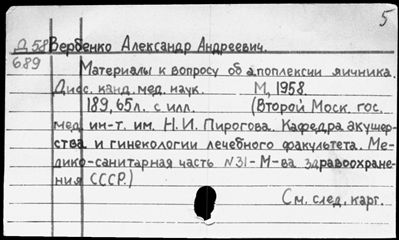 5
Д 58 Вербенко Александр Андреевич.
689
Материалы к вопросу об апоплексии яичника.
Дисс. канд. мед. наук. М, 1958.
189, 65л. с илл. (Второй Моск. гос.
мед. ин-т. им. Н. И. Пирогова. Кафедра акушер-
ства и гинекологии лечебного факультета. Ме-
дико-санитарная часть №31-М-ва здравоохране-
ния СССР.)
См. след. карт.